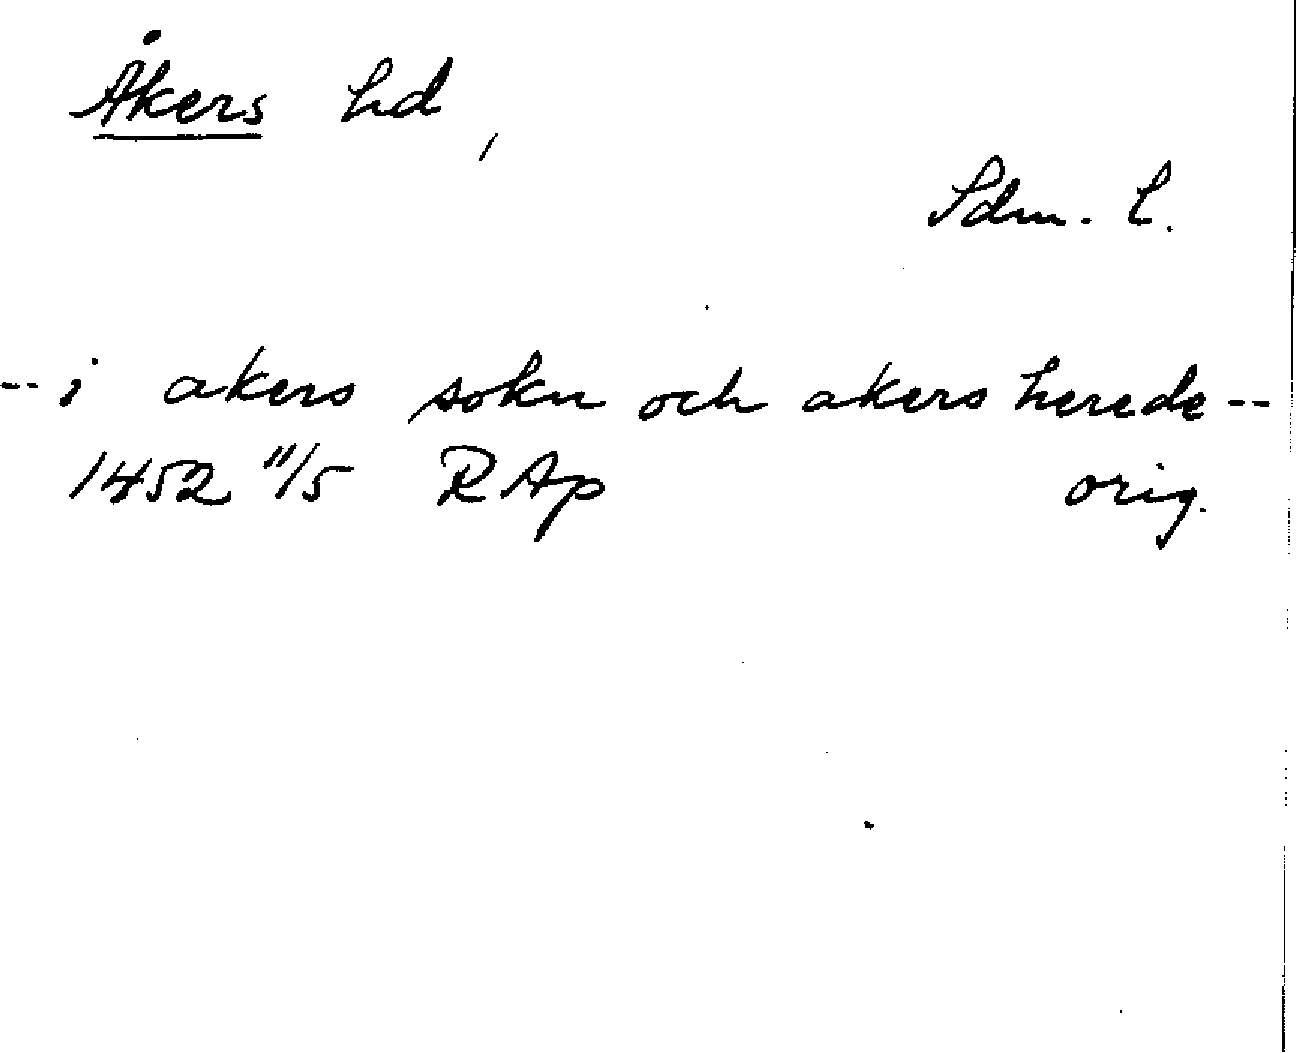 Åkers hd,
Sdm. l.
-- i akers sokn och akers herede --
1452 11/5 RAp orig.